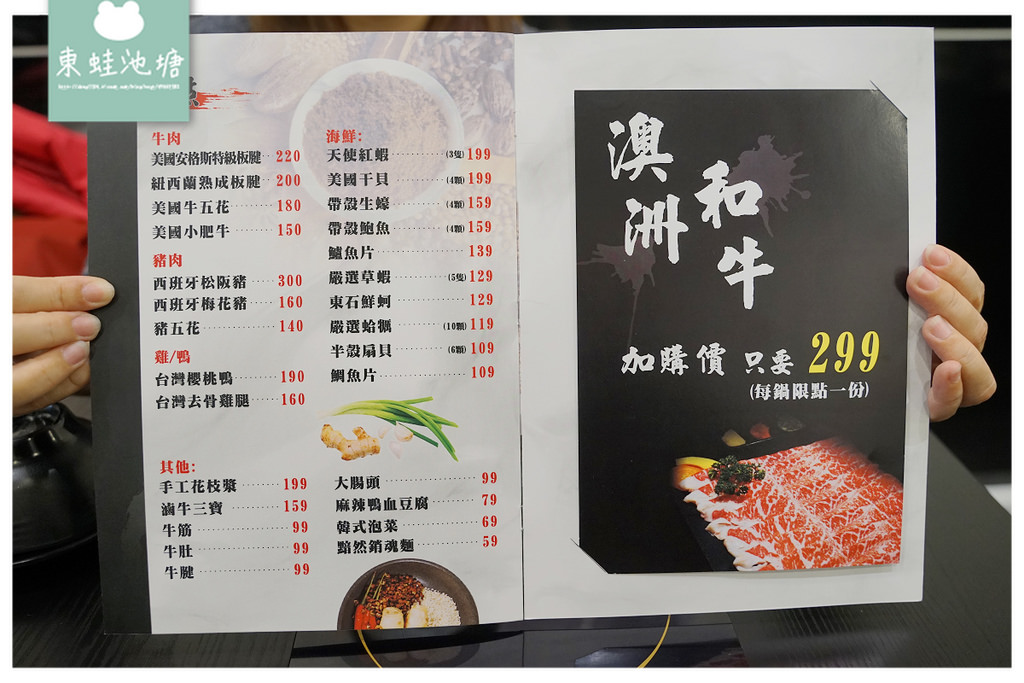 東蛙池塘
點
牛肉
美國安格斯特級板腱 220
紐西蘭熟成板腱 200
美國牛五花 180
美國小肥牛 150
豬肉
西班牙松阪豬 300
西班牙梅花豬 160
豬五花 140
雞/鴨
台灣櫻桃鴨 190
台灣去骨雞腿 160
海鮮:
天使紅蝦 (3隻) 199
美國干貝 (4顆) 199
帶殼生蠔 (4顆) 159
帶殼鮑魚 (4顆) 159
鱸魚片 139
嚴選草蝦 (5隻) 129
東石鮮蚵 129
嚴選蛤蠣 (10顆) 119
半殼扇貝 (6顆) 109
鯛魚片 109
其他:
手工花枝漿 199
滷牛三寶 159
牛筋 99
牛肚 99
牛腱 99
大腸頭 99
麻辣鴨血豆腐 79
韓式泡菜 69
黯然銷魂麵 59
澳洲
和牛
加購價 只要 299
(每鍋限點一份)